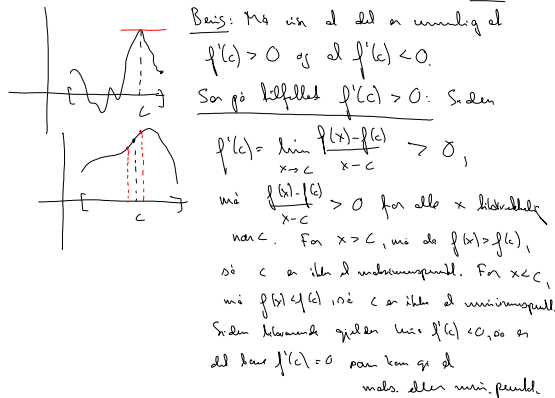 Bevis: Må vise at det er umulig at
f'(c) > 0 og at f'(c) < 0.
Ser på tilfellet f'(c) > 0: Siden
f'(c) = lim x→c (f(x)-f(c))/(x-c) > 0,
må (f(x)-f(c))/(x-c) > 0 for alle x tilstrekkelig
nær c. For x > c, må da f(x) > f(c),
så c er ikke et maksimumspunkt. For x < c,
må f(x) < f(c), så c er ikke et minimumspunkt.
Siden tilsvarende gjelder hvis f'(c) < 0, så er
det bare f'(c) = 0 som kan gi et
maks. eller min. punkt.
[ c ]
[ c ]